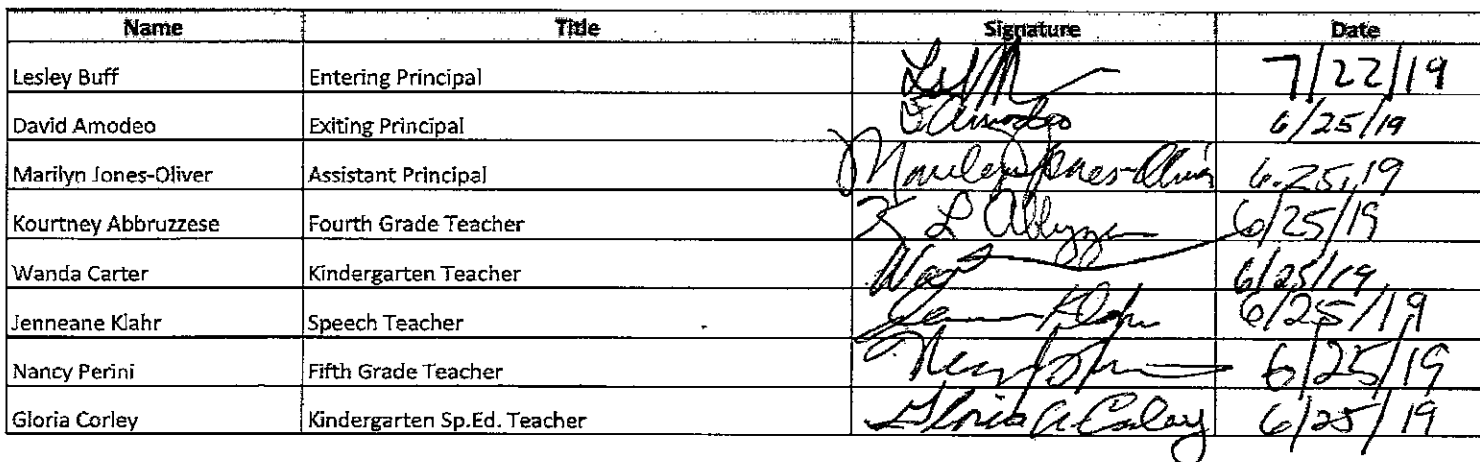 Name Title Signature Date
Lesley Buff Entering Principal 7/22/19
David Amodeo Exiting Principal D Amodeo 6/25/19
Marilyn Jones-Oliver Assistant Principal Marilyn Jones-Oliver 6.25.19
Kourtney Abbruzzese Fourth Grade Teacher K L 6/25/19
Wanda Carter Kindergarten Teacher 6/25/19
Jenneane Klahr Speech Teacher 6/25/19
Nancy Perini Fifth Grade Teacher 6/25/19
Gloria Corley Kindergarten Sp.Ed. Teacher Gloria A Corley 6/25/19